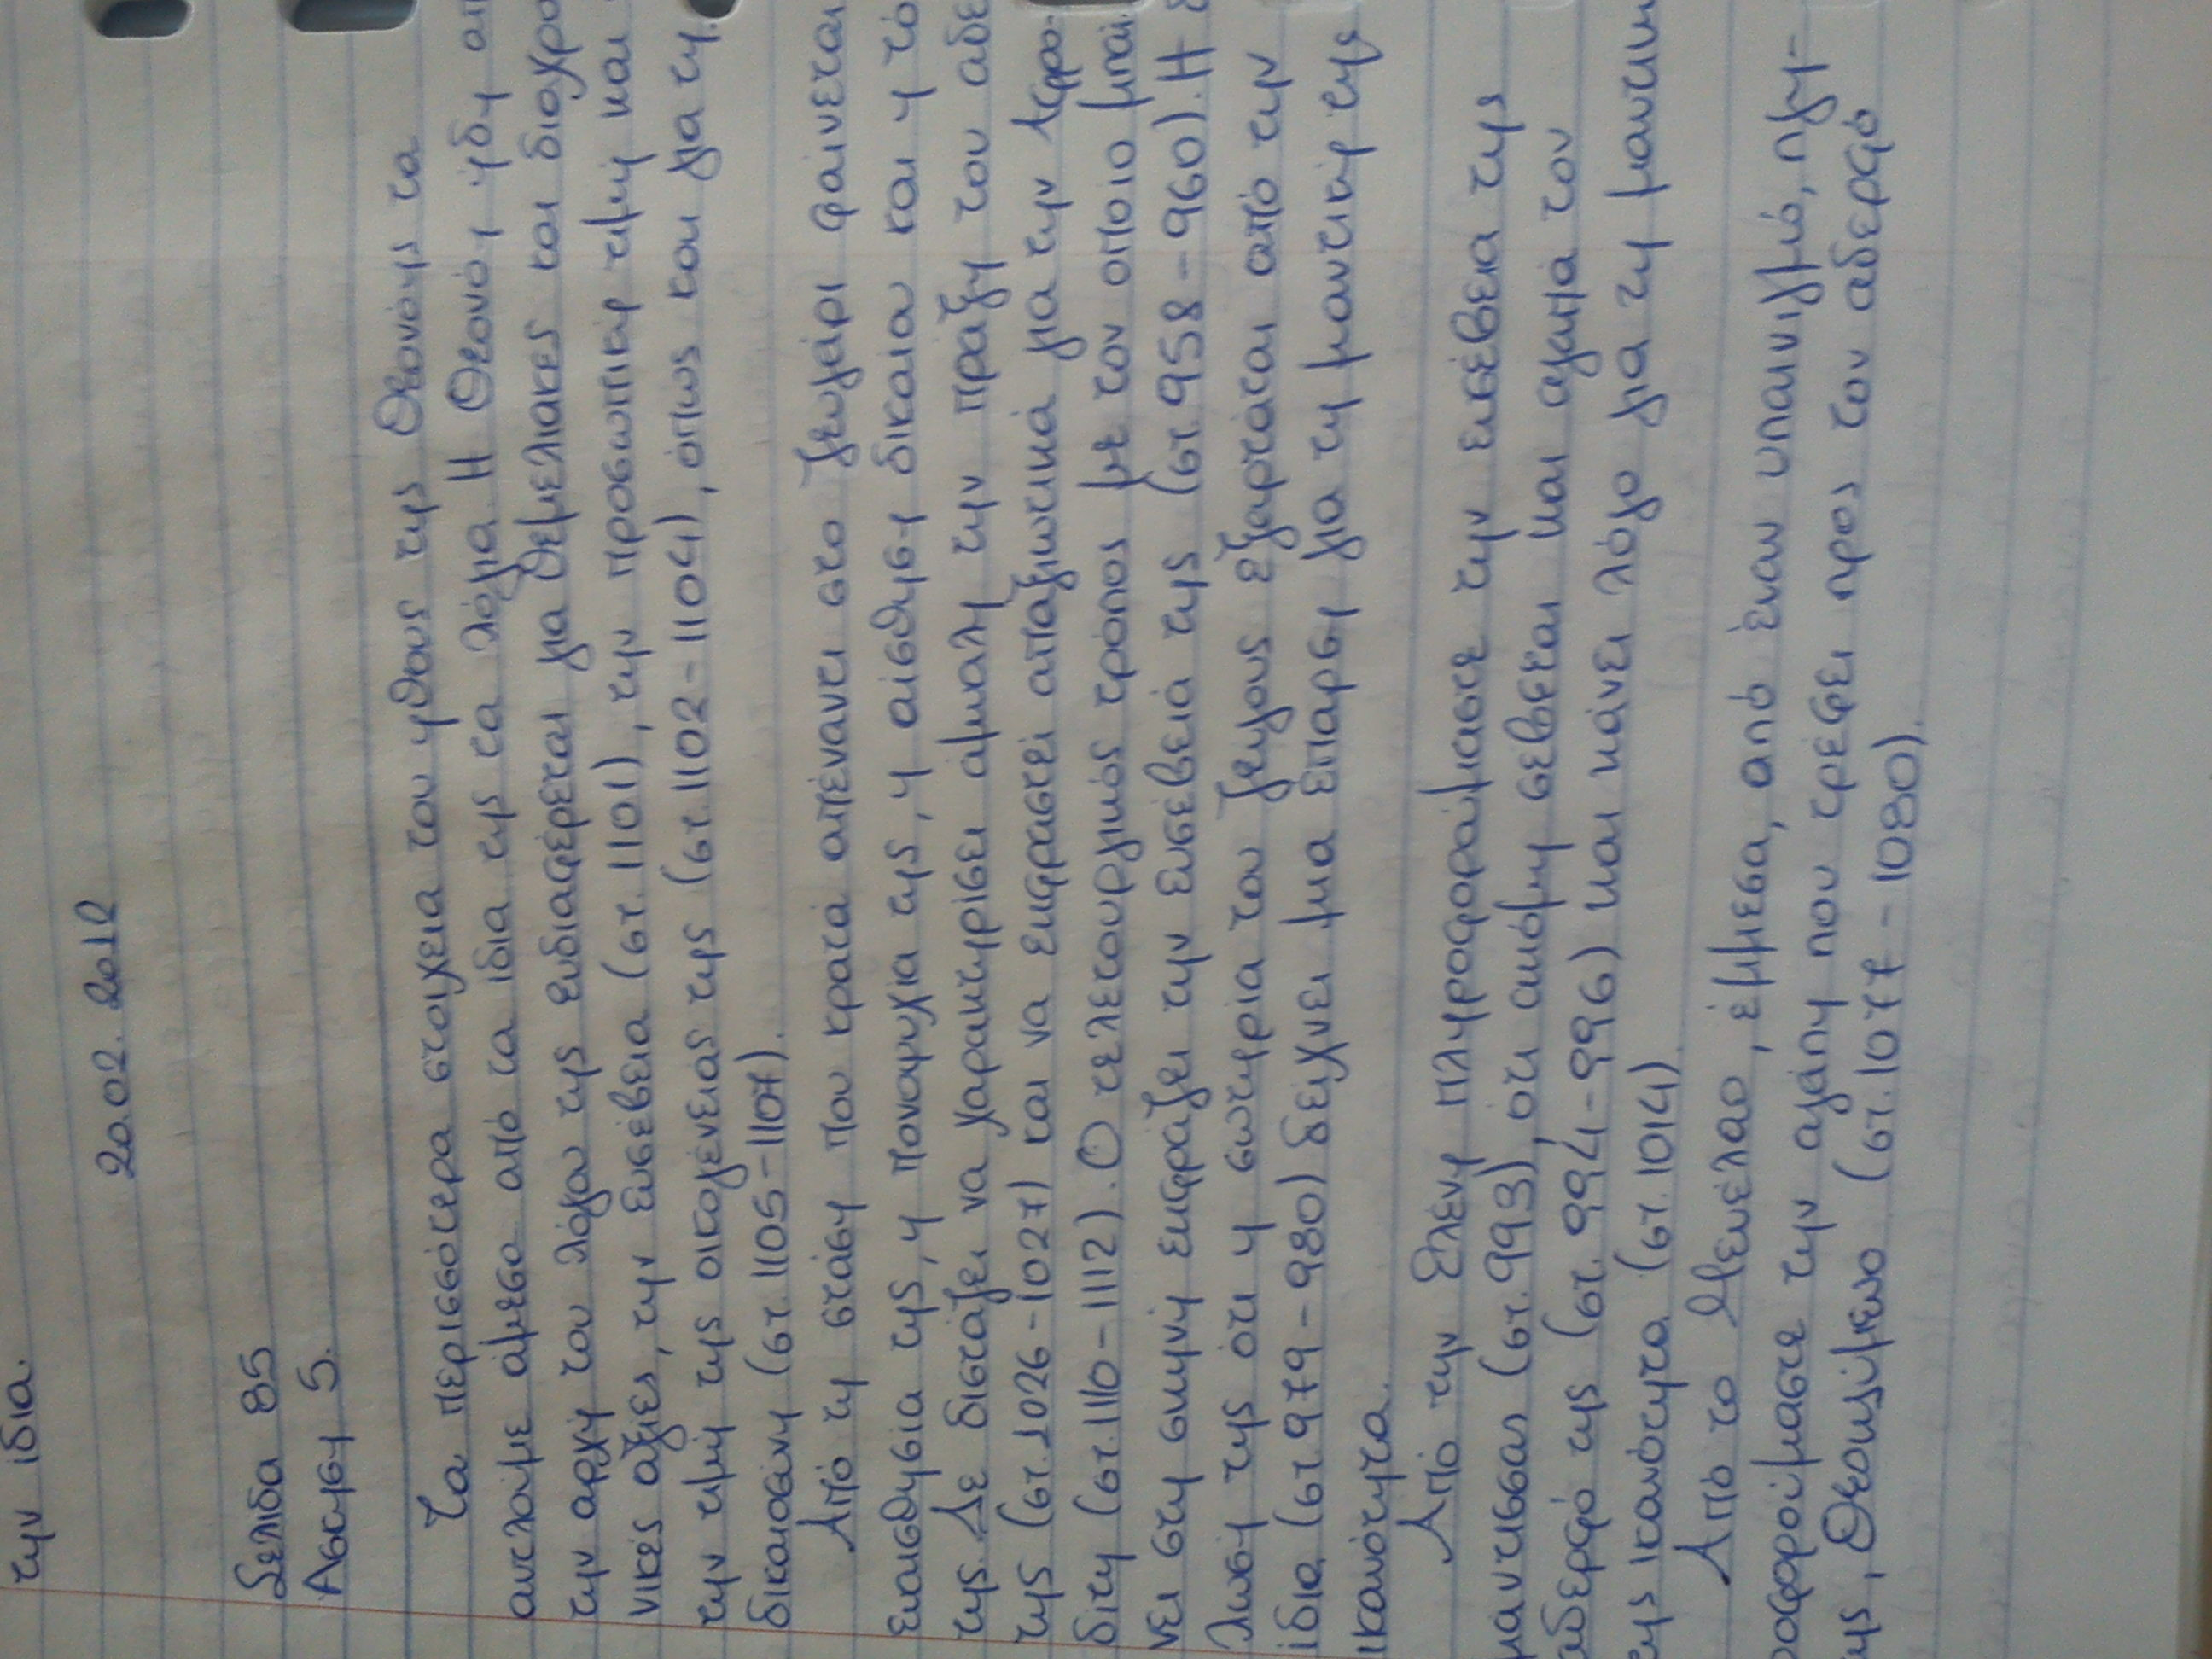 την ίδια.
20.02.2012
Σελίδα 85
Άσκηση 5.
Τα περισσότερα στοιχεία του ήθους της Θεονόης τα
αντλούμε άμεσα από τα ίδια της τα λόγια. Η Θεονόη ήδη απ
την αρχή του λόγου της ενδιαφέρεται για θεμελιακές και διαχρο
νικές αξίες, την ευσέβεια (στ. 1101), την προσωπική τιμή και
την τιμή της οικογένειας της (στ. 1102-1104), όπως και για τη
δικαιοσύνη (στ. 1105-1107).
Από τη στάση που κρατά απέναντι στο ζευγάρι φαίνεται
ευαισθησία της, η πονοψυχία της, η αίσθηση δικαίου και η τό
της. Δε διστάζει να χαρακτηρίσει άμυαλη την πράξη του αδε
της (στ. 1026-1027) και να εκφραστεί απαξιωτικά για την Αφρο-
δίτη (στ. 1110-1112). Ο τελετουργικός τρόπος με τον οποίο μπαί
νει στη σκηνή εκφράζει την ευσέβειά της (στ. 958-960). Η δ
λωσή της ότι η σωτηρία του ζεύγους εξαρτάται από την
ίδια (στ. 979-980) δείχνει μια έπαρση για τη μαντική της
ικανότητα.
Από την Ελένη πληροφορούμαστε την ευσέβεια της
μάντισσας (στ. 993), ότι ακόμη σέβεται και αγαπά τον
αδερφό της (στ. 994-996) και κάνει λόγο για τη μαντικ
της ικανότητα (στ. 1014)
Από το Μενέλαο, έμμεσα, από έναν υπαινιγμό, πλη-
ροφορούμαστε την αγάπη που τρέφει προς τον αδερφό
της, Θεοκλύμενο (στ. 1077-1080).